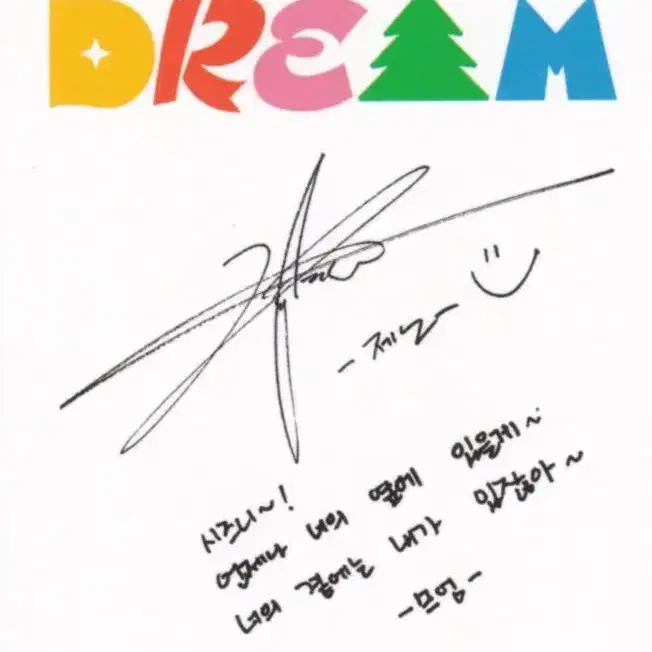 DREAM
- 제노 -
시즈니~!
언제나 너의 옆에 있을게~
너의 곁에는 내가 있잖아~